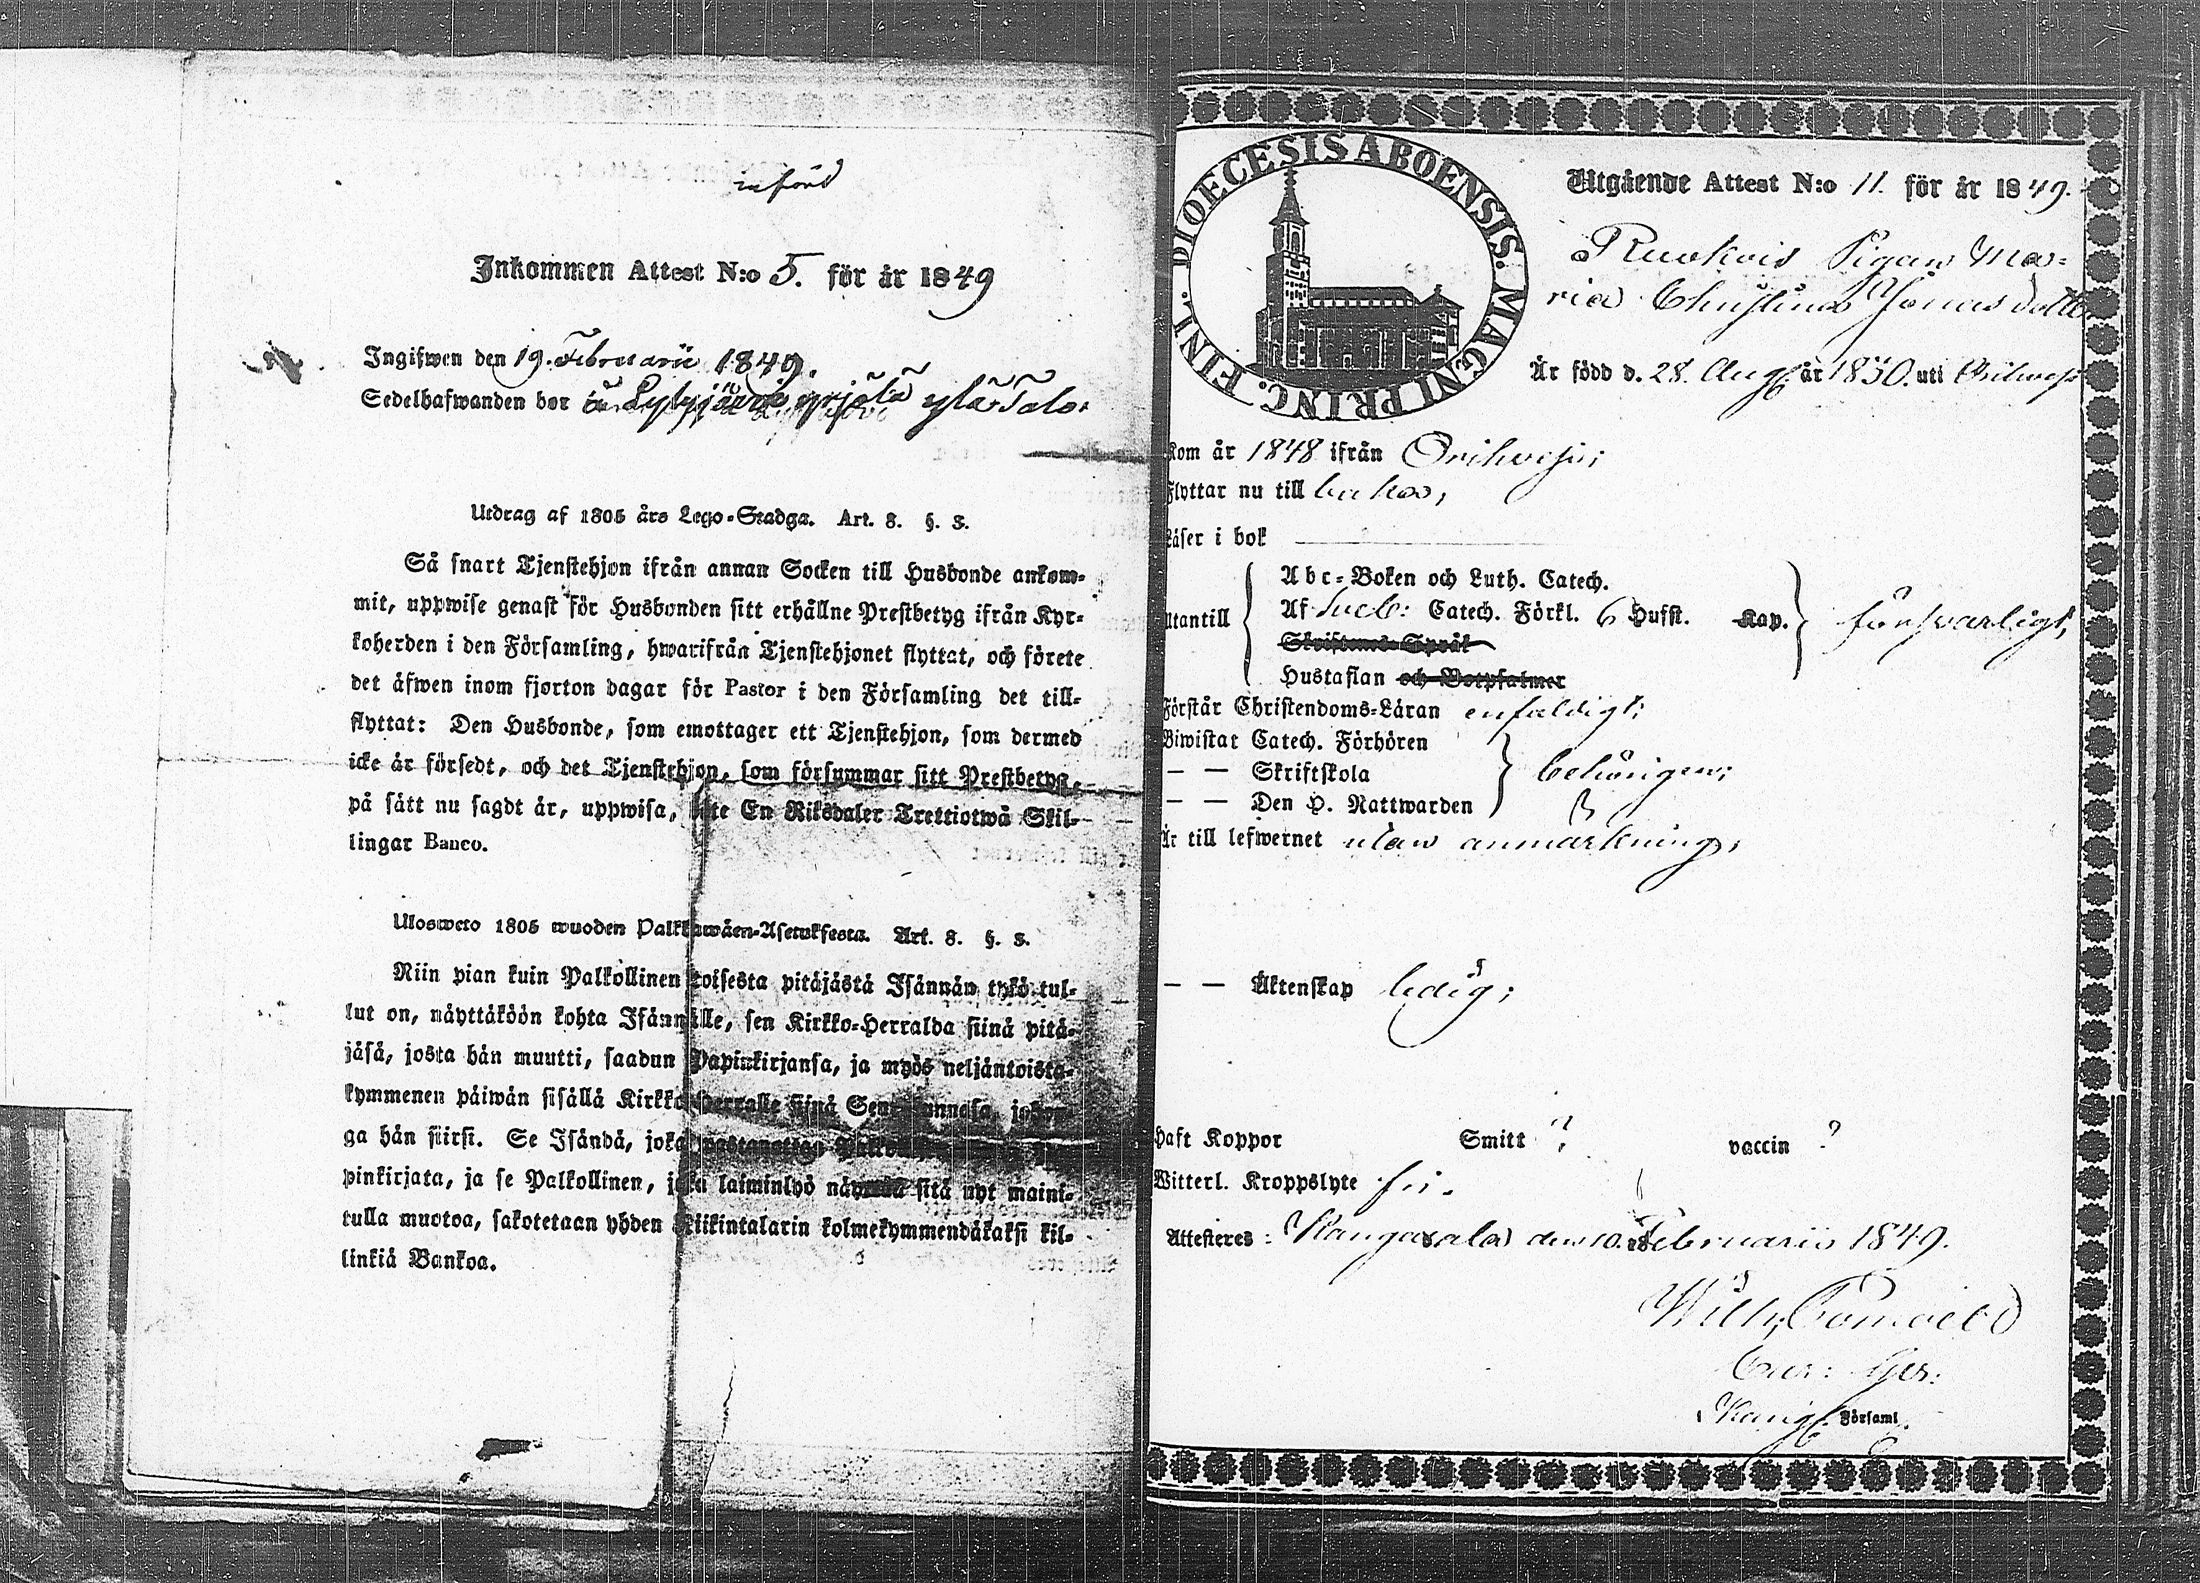 införd
Inkommen Attest N:o 5. för år 1849
Ingifwen den 19. Februarii 1849.
Sedelhafwanden bor ylä Talo.
Utdrag af 1805 års Lego-Stadga. Art. 8. §. 3.
Så snart Tjenstehjon ifrån annan Socken till Husbonde ankom-
mit, uppwise genast för Husbonden sitt erhållne Prestbetyg ifrån Kyr-
koherden i den Församling, hwarifrån Tjenstehjonet flyttat, och förete
det äfwen inom fjorton dagar för Pastor i den Församling det till-
flyttat: Den Husbonde, som emottager ett Tjenstehjon, som dermed
icke är försedt, och det Tjenstehjon, som försummar sitt Prestbetyg,
på sätt nu sagdt är, uppwisa, böte En Riksdaler Trettiotwå Skil-
lingar Banco.
Ulosweto 1805 wuoden Palkkawäen-Asetuksesta. Art. 8. §. 3.
Niin pian kuin Palkollinen toisesta pitäjästä Isännän tykö tul-
lut on, näyttäköön kohta Isännälle, sen Kirkko-Herralda siinä pitä-
jäsä, josta hän muutti, saadun Papinkirjansa, ja myös neljäntoista-
kymmenen päiwän sisällä Kirkko-Herralle siinä Seurakunnasa, johon-
ga hän siirsi. Se Isändä, joka wastanottaa
pinkirjata, ja se Palkollinen, joka laiminlyö näyttää sitä nyt maini-
tulla muotoa, sakotetaan yhden Riikintalarin kolmekymmendäkaksi kil-
linkiä Bankoa.
DIOECESIS ABOENSIS. MAGNI PRINC. FINL.
Utgående Attest N:o 11. för år 1849.
Pigan Ma-
ria Christina Jonasdotter
Är född d. 28. Aug. år 1830. uti Orihvesi
Kom år 1848 ifrån Orihvesi;
Flyttar nu till
Läser i bok
Utantill
Abc-Boken och Luth. Catech.
Af Sveb: Catech. Förkl. 6 Hufst. Kap. försvarligt,
Skriftenes Språk
Hustaflan och Botpsalmer
Förstår Christendoms-Läran enfaldigt;
Biwistat Catech. Förhören
— — Skriftskola behörigen;
— — Den H. Nattwarden
Är till lefwernet utan anmärkning,
— — Äktenskap ledig;
Haft Koppor Smitt ? vaccin ?
Witterl. Kroppslyte fri.
Attesteres: Kangasala den 10. Februarii 1849.
Wilh.
Kang. Församl.